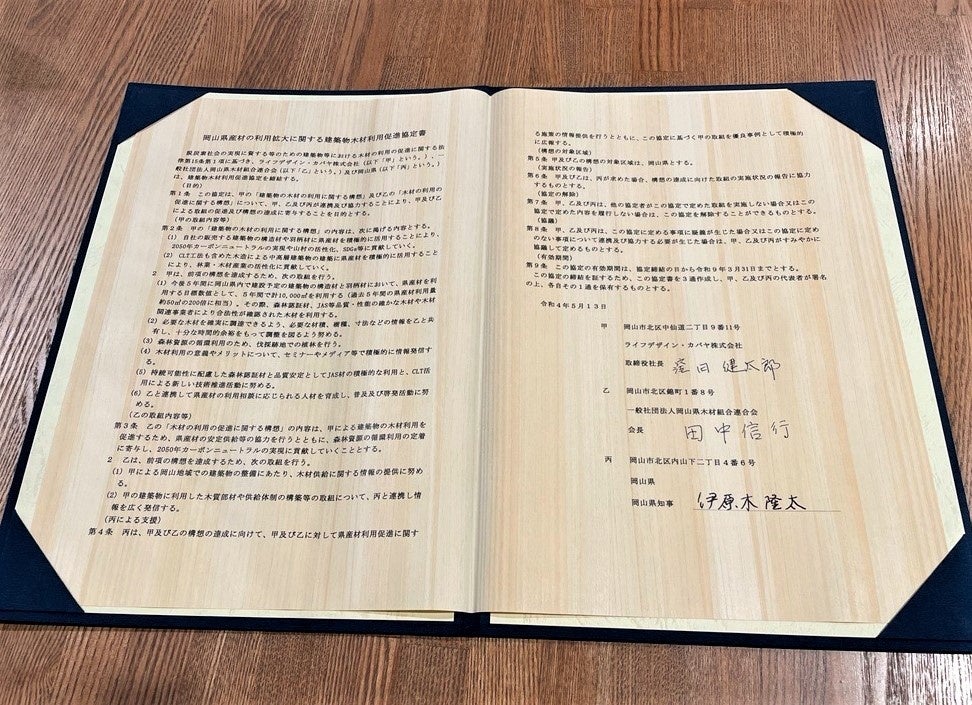 岡山県産材の利用拡大に関する建築物木材利用促進協定書
脱炭素社会の実現に資する等のための建築物等における木材の利用の促進に関する法
律第15条第1項に基づき、ライフデザイン・カバヤ株式会社（以下「甲」という。）、一
般社団法人岡山県木材組合連合会（以下「乙」という。）及び岡山県（以下「丙」という。）
は、建築物木材利用促進協定を締結する。
（目的）
第1条　この協定は、甲の「建築物の木材の利用に関する構想」及び乙の「木材の利用の
促進に関する構想」について、甲、乙及び丙が連携及び協力することにより、甲及び乙
による取組の促進及び構想の達成に寄与することを目的とする。
（甲の取組内容等）
第2条　甲の「建築物の木材の利用に関する構想」の内容は、次に掲げる内容とする。
(1) 自社の販売する建築物の構造材や羽柄材に県産材を積極的に活用することにより、
2050年カーボンニュートラルの実現や山村の活性化、SDGs等に貢献していく。
(2) CLT工法も含めた木造による中高層建築物の建築に県産材を積極的に活用すること
により、林業・木材産業の活性化に貢献していく。
2　甲は、前項の構想を達成するため、次の取組を行う。
(1) 今後5年間に岡山県内で建設予定の建築物の構造材と羽柄材において、県産材の利
用する目標数値として、5年間で計10,000㎥を利用する（過去5年間の県産材利用量
約50㎥の200倍に相当）。その際、森林認証材、JAS等品質・性能の確かな木材や木材
関連事業者により合法性が確認された木材の利用を行う。
(2) 必要な木材を確実に調達できるよう、必要な材積、樹種、寸法などの情報を乙と共
有し、十分な時間的余裕をもって調整を図るよう努める。
(3) 森林資源の循環利用のため、伐採跡地での植林を行う。
(4) 木材利用の意義やメリットについて、セミナーやメディア等で積極的に情報発信す
る。
(5) 持続可能性に配慮した森林認証材と品質安定としてJAS材の積極的な利用と、CLT活
用による新しい技術推進活動に努める。
(6) 乙と連携して県産材の利用相談に応じられる人材を育成し、普及及び啓発活動に努
める。
（乙の取組内容等）
第3条　乙の「木材の利用の促進に関する構想」の内容は、甲による建築物の木材利用を
促進するため、県産材の安定供給等の協力を行うとともに、森林資源の循環利用の定着
に寄与し、2050年カーボンニュートラルの実現に貢献していくこととする。
2　乙は、前項の構想を達成するため、次の取組を行う。
(1) 甲による岡山地域での建築物の整備にあたり、木材供給に関する情報の提供に努め
る。
(2) 甲の建築物に利用した木質部材や供給体制の構築等の取組について、丙と連携し情
報を広く発信する。
（丙による支援）
第4条　丙は、甲及び乙の構想の達成に向けて、甲及び乙に対して県産材利用促進に関す
る施策の情報提供を行うとともに、この協定に基づく甲の取組を優良事例として積極的
に広報する。
（構想の対象区域）
第5条　甲及び乙の構想の対象区域は、岡山県とする。
（実施状況の報告）
第6条　甲及び乙は、丙が求めた場合、構想の達成に向けた取組の実施状況の報告に協力
するものとする。
（協定の解除）
第7条　甲、乙及び丙は、他の協定者がこの協定で定めた取組を実施しない場合又はこの
協定で定めた内容を履行しない場合は、この協定を解除することができるものとする。
（協議）
第8条　甲、乙及び丙は、この協定に定める事項に疑義が生じた場合又はこの協定に定め
のない事項について連携及び協力する必要が生じた場合は、甲、乙及び丙がすみやかに
協議して定めるものとする。
（有効期間）
第9条　この協定の有効期間は、協定締結の日から令和9年3月31日までとする。
この協定の締結を証するため、この協定書を3通作成し、甲、乙及び丙の代表者が署名
の上、各自その1通を保有するものとする。
令和4年5月13日
甲　岡山市北区中仙道二丁目9番11号
ライフデザイン・カバヤ株式会社
取締役社長　窪田健太郎
乙　岡山市北区錦町1番8号
一般社団法人岡山県木材組合連合会
会長　田中信行
丙　岡山市北区内山下二丁目4番6号
岡山県
岡山県知事　伊原木隆太